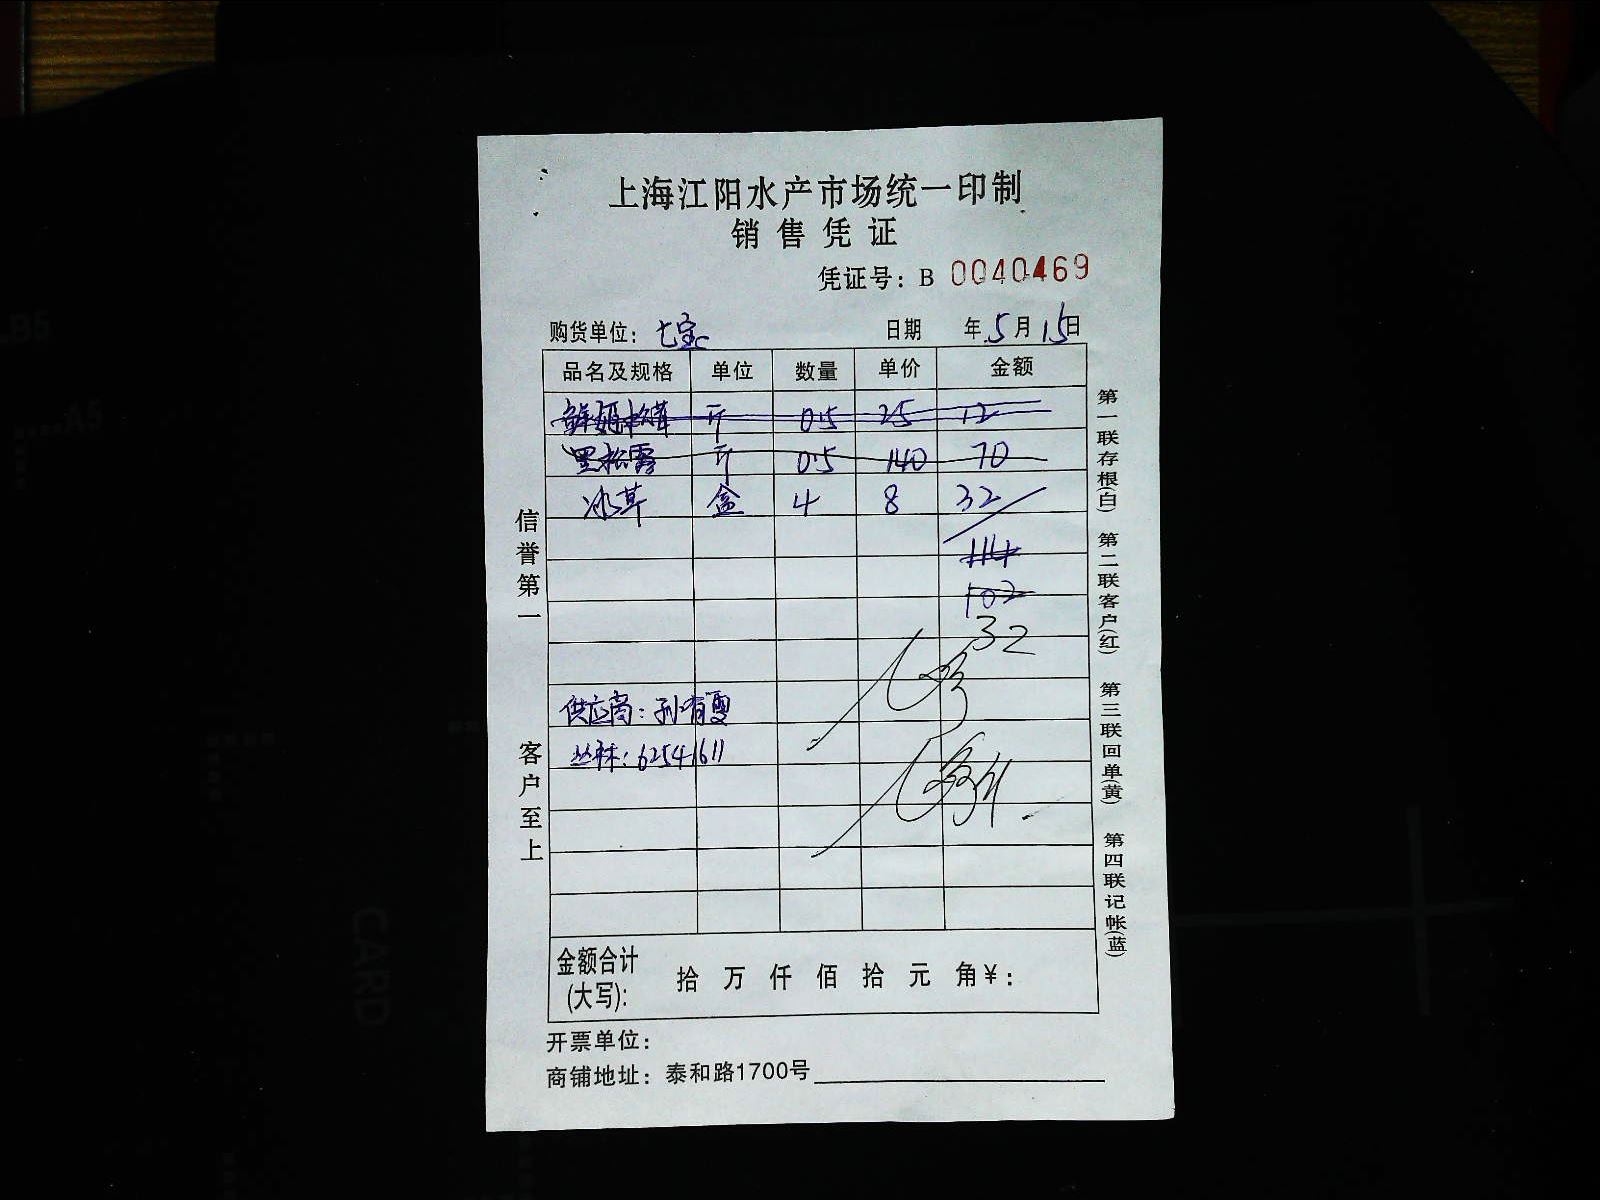 上海江阳水产市场统一印制
销售凭证
凭证号：B 0040469
购货单位：七宝 日期 年 5月15日
品名及规格 单位 数量 单价 金额
斤 0.5 25 12
黑松露 斤 0.5 140 70
冰草 盒 4 8 32
114
102
32
供应商：孙有
丛林：62541611
信誉第一
客户至上
第一联存根(白) 第二联客户(红) 第三联回单(黄) 第四联记帐(蓝)
金额合计
(大写)： 拾 万 仟 佰 拾 元 角¥：
开票单位：
商铺地址：泰和路1700号